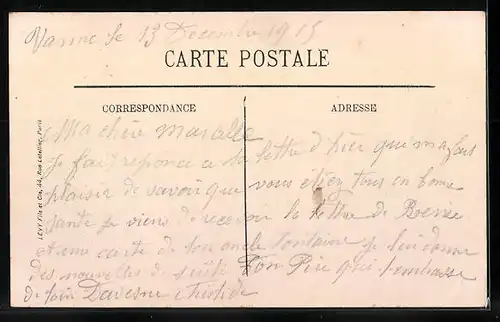 Vanne le 13 Decembre 1915
CARTE POSTALE
CORRESPONDANCE
ADRESSE
LEVY Fils et Cie, 44, Rue Letellier, Paris
Ma chère Marcelle
je fait reponce a ta lettre d'hier qui ma fais
plaisir de savoir que vous etiez tous en bonne
sante je viens de recevoir la lettre de
et une carte de ton oncle Fontaine je lui donne
des nouvelles de suite Ton Père qui t'embrasse
de loin Davesne Aristide